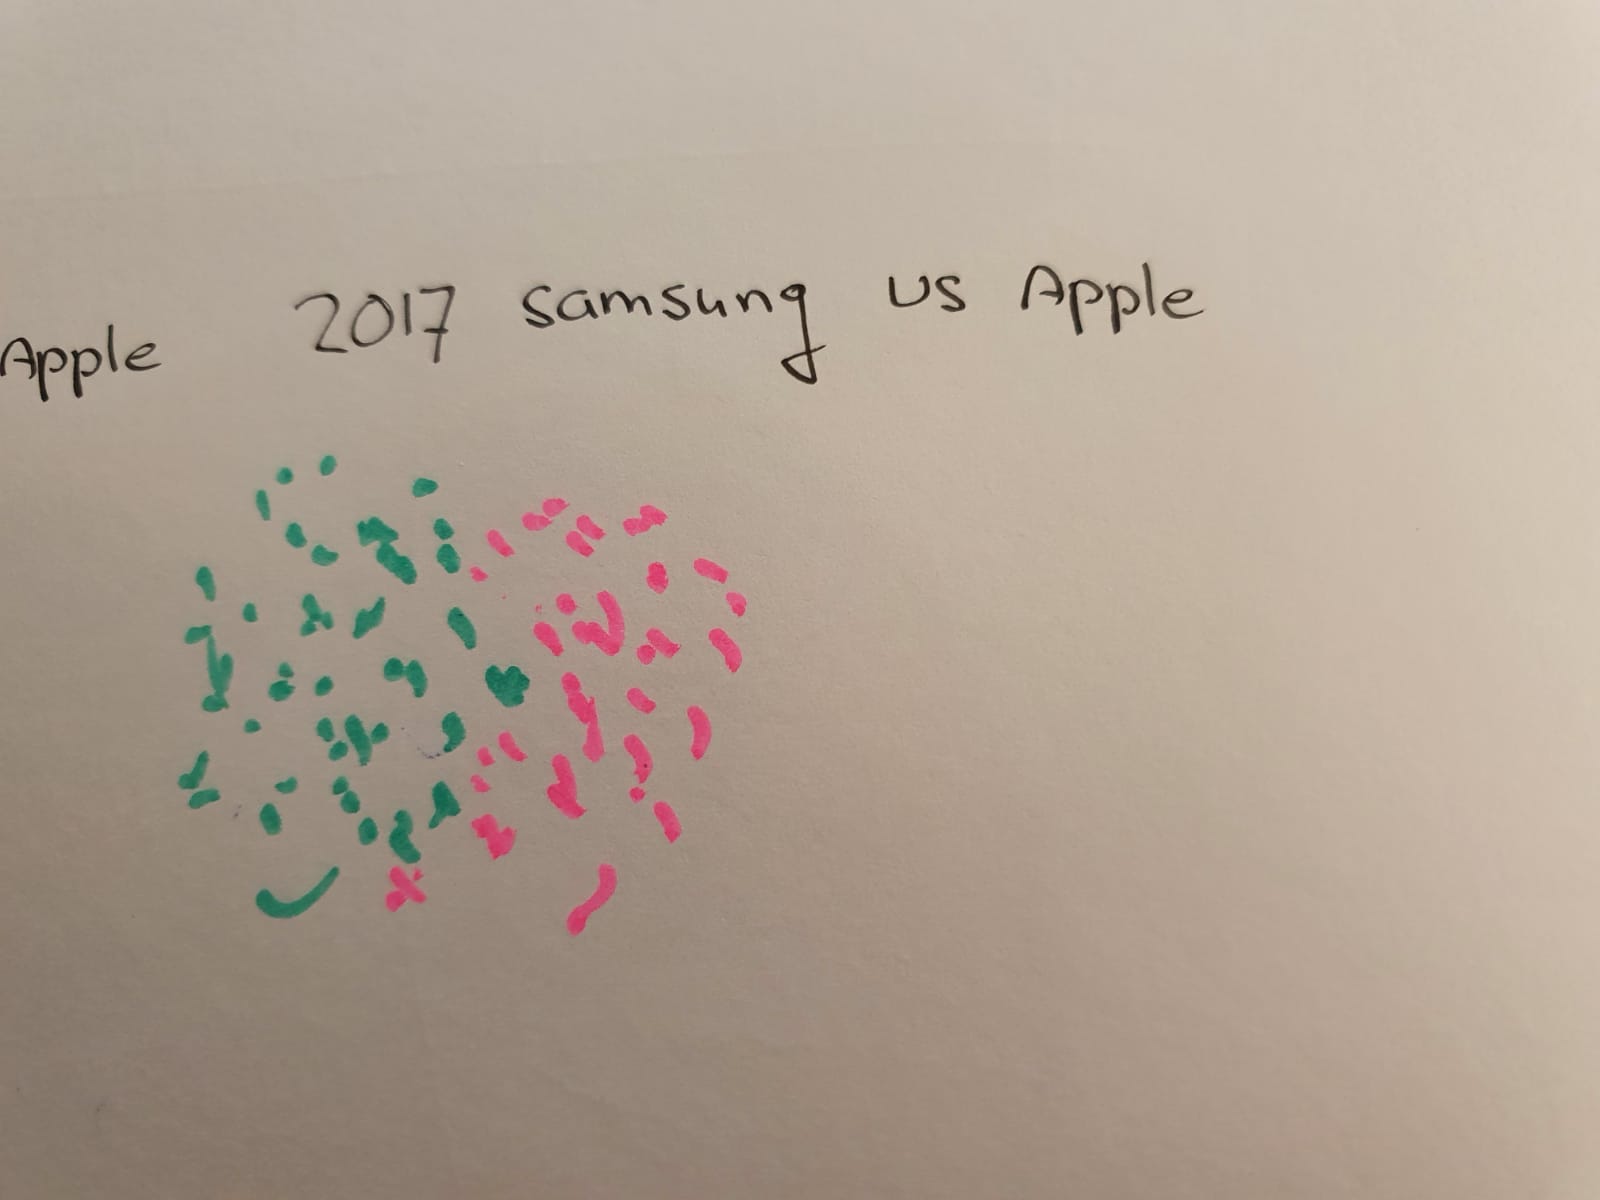 Apple 2017 samsung vs Apple